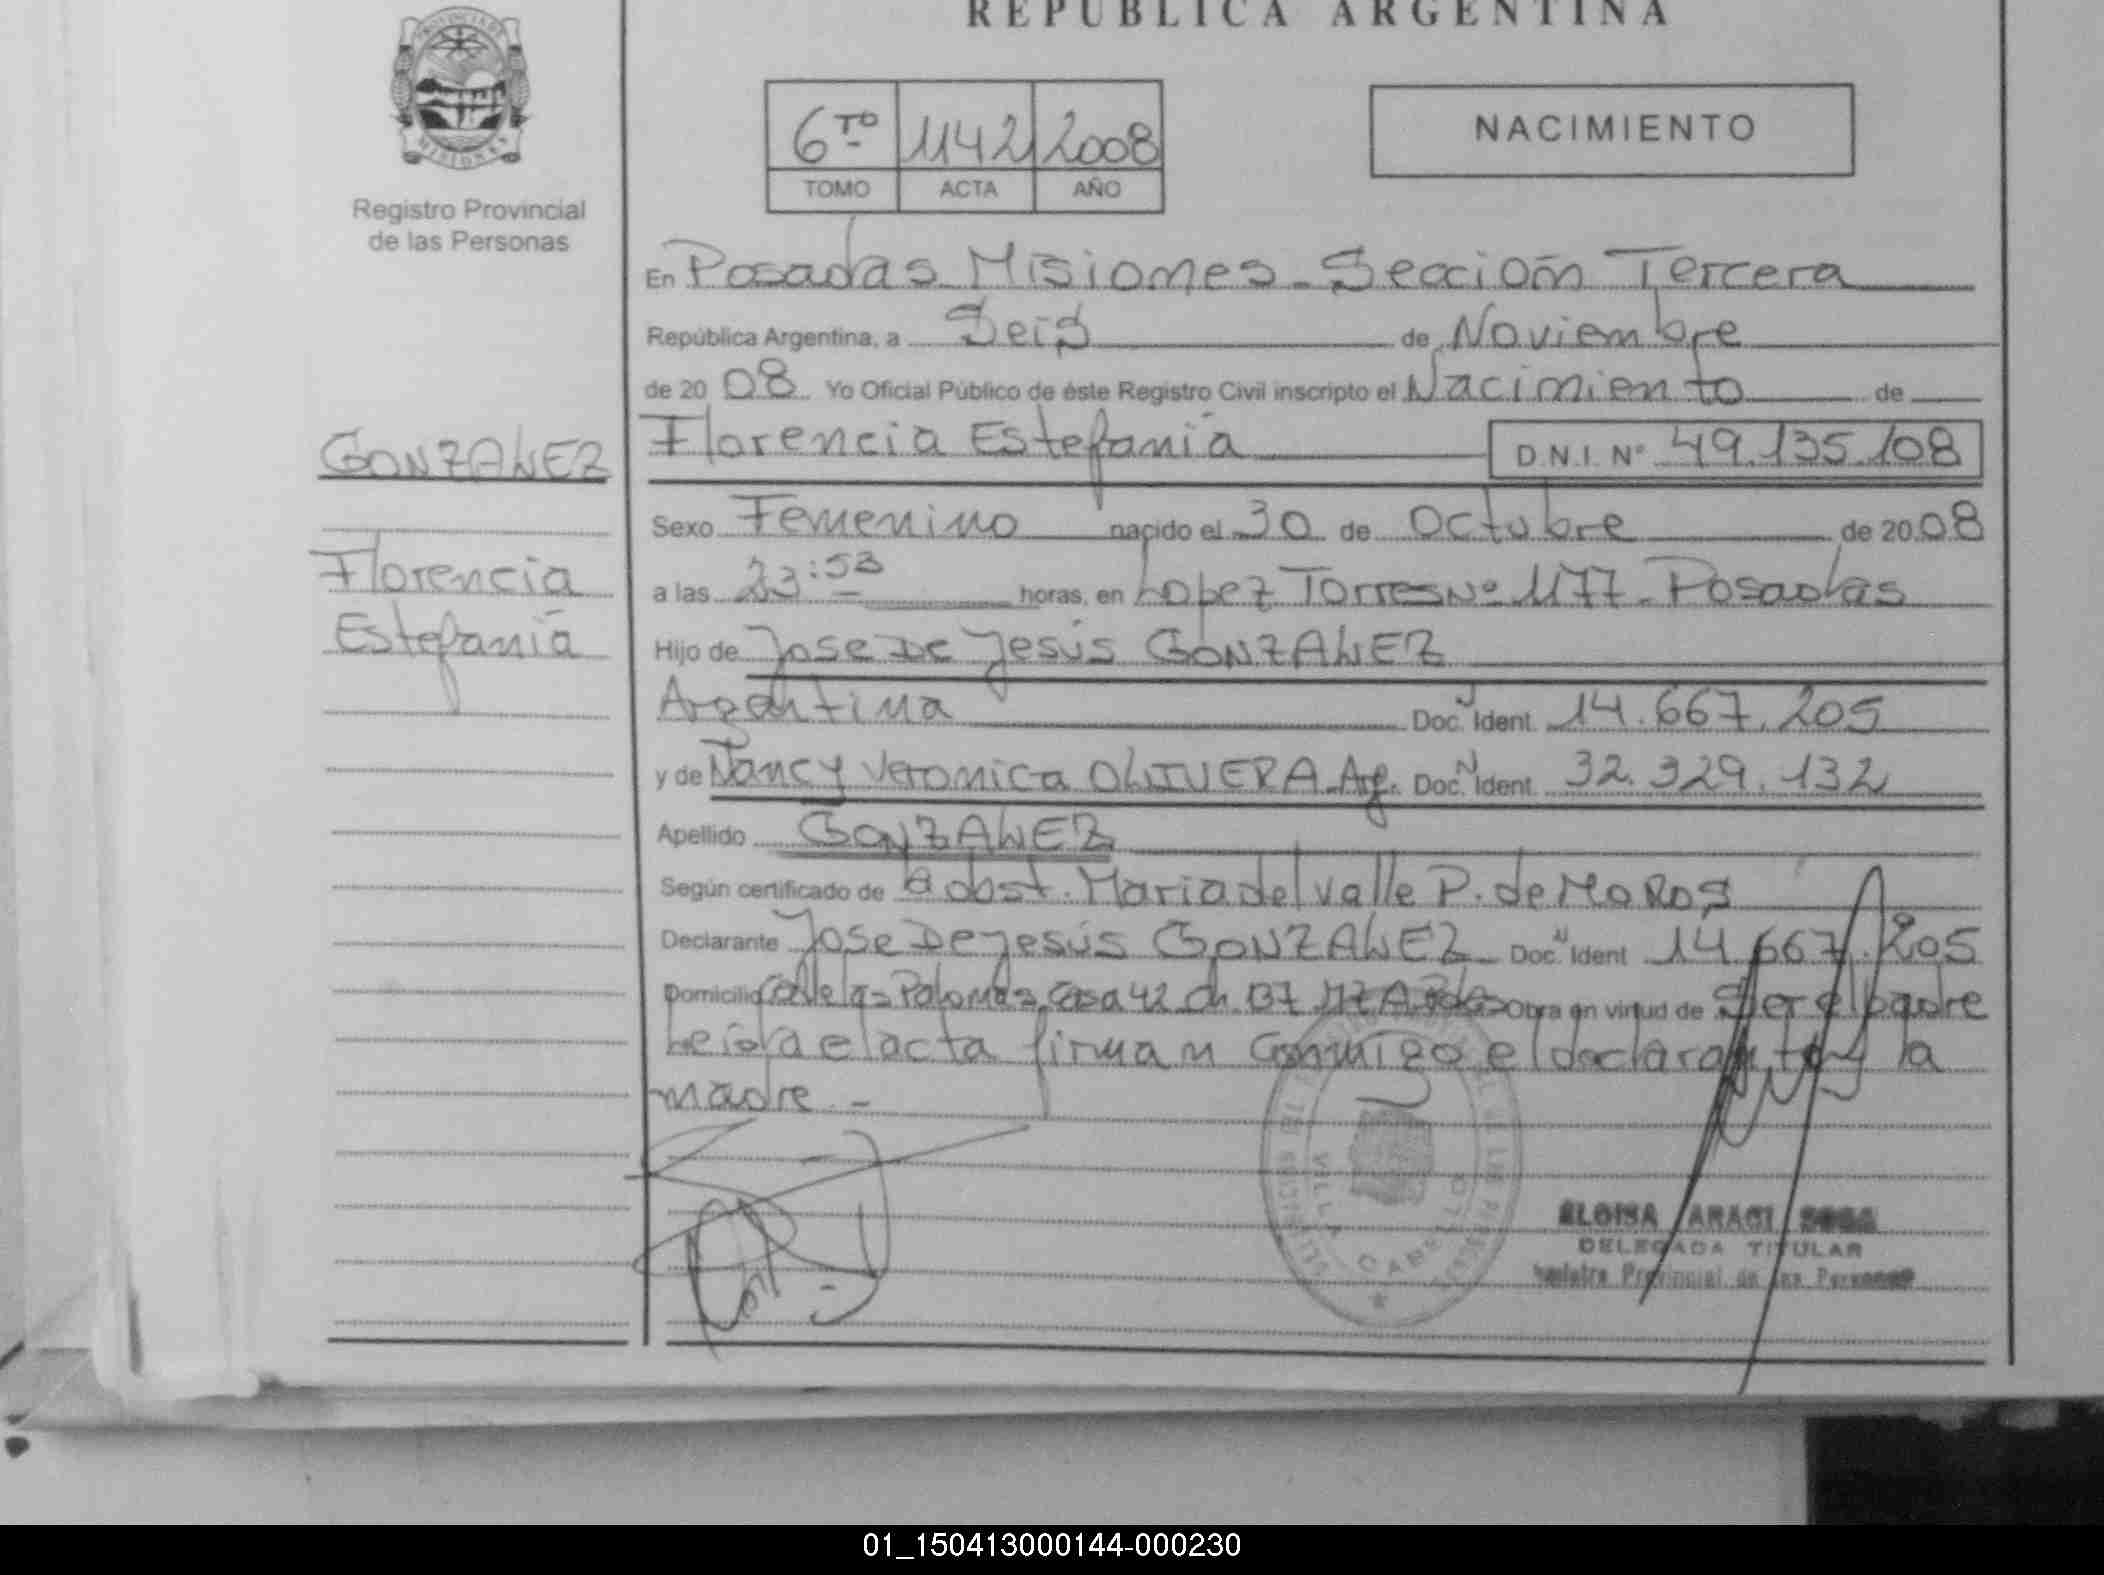 REPUBLICA ARGENTINA
PROVINCIA DE
MISIONES
Registro Provincial
de las Personas
6to 1142 2008
TOMO ACTA AÑO
NACIMIENTO
En Posadas Misiones - Sección Tercera
República Argentina, a Seis de Noviembre
de 2008 Yo Oficial Público de éste Registro Civil inscripto el Nacimiento de
GONZALEZ
Florencia Estefania D.N.I. Nº 49.135.108
Sexo Femenino nacido el 30 de Octubre de 2008
Florencia
Estefania
a las 23:53 horas, en Lopez Torres Nº 1177 - Posadas
Hijo de Jose De Jesús GONZALEZ
Argentina Doc. N Ident. 14.667.205
y de Nancy Veronica OLIVERA - Arg. Doc. N Ident. 32.329.132
Apellido GONZALEZ
Según certificado de la obst. Maria del Valle P. de MOROS
Declarante Jose De Jesús GONZALEZ - Doc. N Ident 14.667.205
Domicilio Calle las Palomas Casa 42 Ch. 137 Obra en virtud de Ser el padre
Leida el acta firman conmigo el declarante y la
madre. -
VILLA CABELLO
ELOISA ARAGI SOSA
DELEGADA TITULAR
Registro Provincial de las Personas
01_150413000144-000230